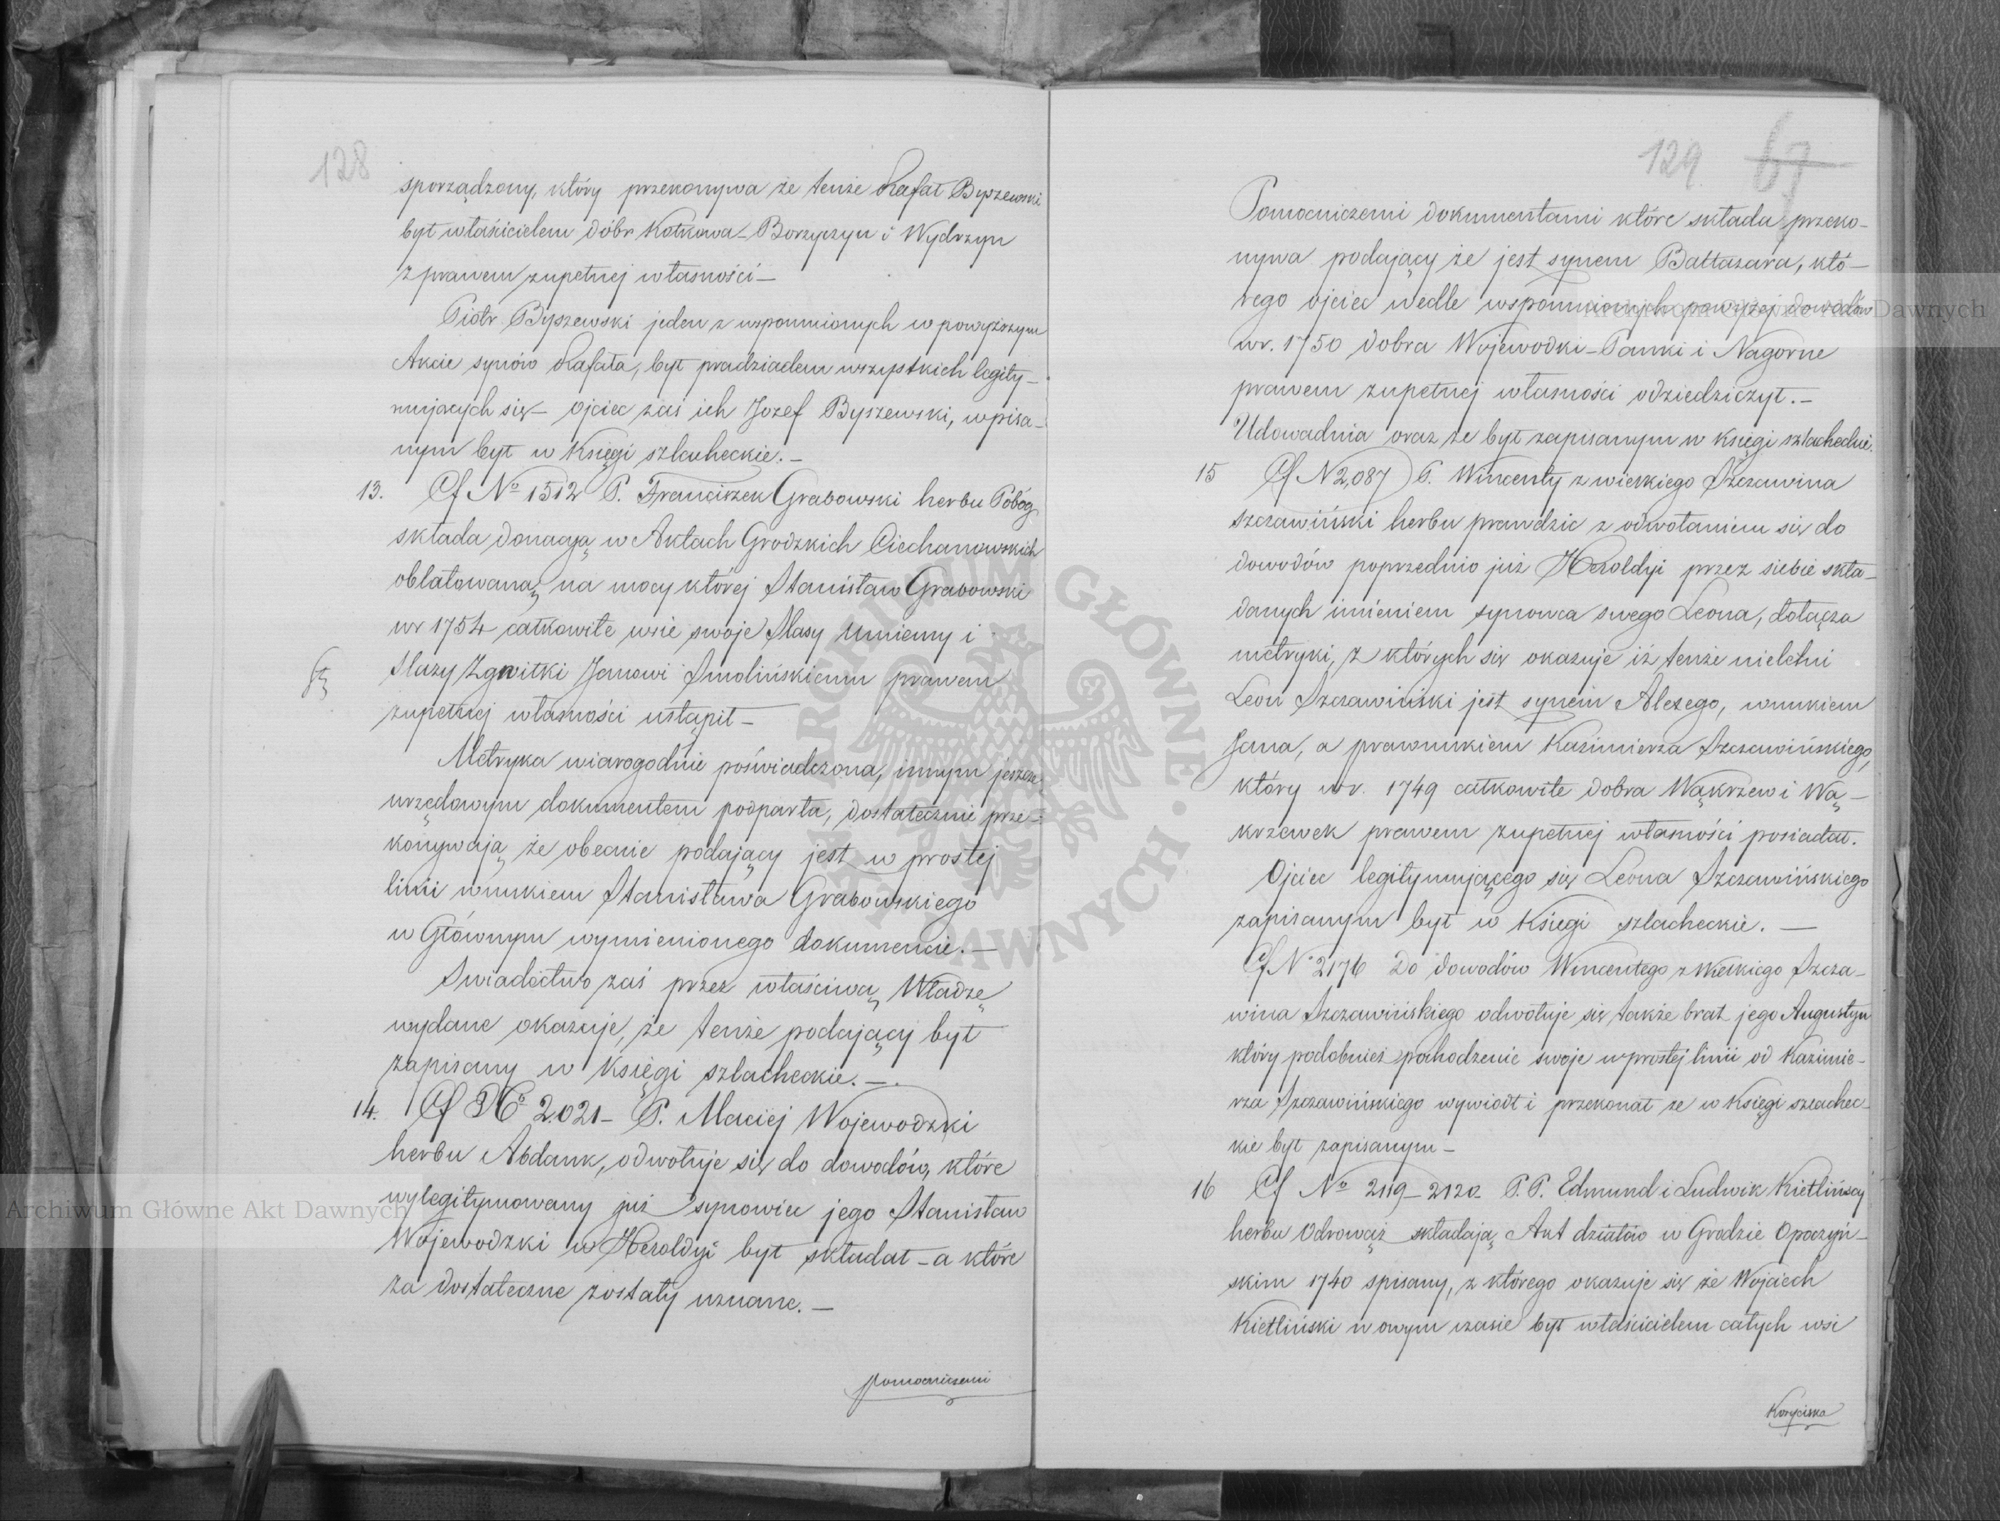 128
sporządzony, który przekonywa że tenże Rafał Byszewski
był właścicielem dóbr Kotkowa – Borzyczyn i Wydrzyn
z prawem zupełnej własności –
Piotr Byszewski jeden z wspomnionych w powyższym
Akcie synów Rafała, był pradziadem wszystkich legity–
mujących się – ojciec zaś ich Jozef Byszewski, wpisa–
nym był w Księgi szlacheckie. –
13. Cf No 1512 P. Franciszek Grabowski herbu Póbóg
składa donacyą w Aktach Grodzkich Ciechanowskich
oblatowaną na mocy której Stanisław Grabowski
w r 1754 całkowite wsie swoje Slasy Umiemy i
Slazy Zgnitki Janowi Smolińskiemu prawem
zupełnej własności ustąpił –
Metryka wiarogodnie poświadczona, innym jeszcze
urzędowym dokumentem podparta, dostatecznie prze–
konywają że obecnie podający jest w prostej
linii wnukiem Stanisława Grabowskiego
w Głównym wymienionego dokumencie. –
Swiadectwo zaś przez właściwą Władzę
wydane okazuje, że tenże podający był
zapisany w Księgi szlacheckie. –
14. Cf No 2.021 – P. Maciej Wojewodzki
herbu Abdank, odwołuje się do dowodów, które
wylegitymowany już synowiec jego Stanisław
Wojewodzki w Heroldyi był składał – a które
za dostateczne zostały uznane. –
pomocniczemi
129 67
Pomocniczemi dokumentami które składa przeko–
nywa podający że jest synem Baltazara, któ–
rego ojciec wedle wspomnionych powyżej dowodów
w r. 1750 dobra Wojewodki – Panki i Nagorne
prawem zupełnej własności odziedziczył. –
Udowadnia oraz że był zapisanym w księgi szlacheckie.
15 Cf N 2,087 P. Wincenty z wielkiego Szczawina
Szczawiński herbu prawdzic z odwołaniem się do
dowodów poprzednio już Heroldyi przez siebie skła–
danych imieniem synowca swego Leona, dołącza
metryki, z których się okazuje iż tenże nieletni
Leon Szczawiński jest synem Alexego, wnukiem
Jana, a prawnukiem Kazimierza Szczawińskiego,
który w r. 1749 całkowite dobra Wąkrzew i Wą–
krzewek prawem zupełnej własności posiadał.
Ojciec legitymującego się Leona Szczawińskiego
zapisanym był w Księgi szlacheckie. –
Cf No 2176 Do dowodów Wincentego z Wielkiego Szcza–
wina Szczawińskiego odwołuje się także brat jego Augustyn
który podobnież pochodzenie swoje w prostej linii od Kazimie–
rza Szczawińskiego wywiodł i przekonał że w Księgi szlachec–
kie był zapisanym –
16 Cf No 2119 – 2120 P.P. Edmund i Ludwik Kietlińscy
herbu Odrowąż składają Akt działów w Grodzie Opoczyń–
skim 1740 spisany, z którego okazuje się że Wojciech
Kietliński w owym czasie był właścicielem całych wsi
Koryciska
Archiwum Główne Akt Dawnych
Archiwum Główne Akt Dawnych
ARCHIWUM GŁÓWNE AKT DAWNYCH